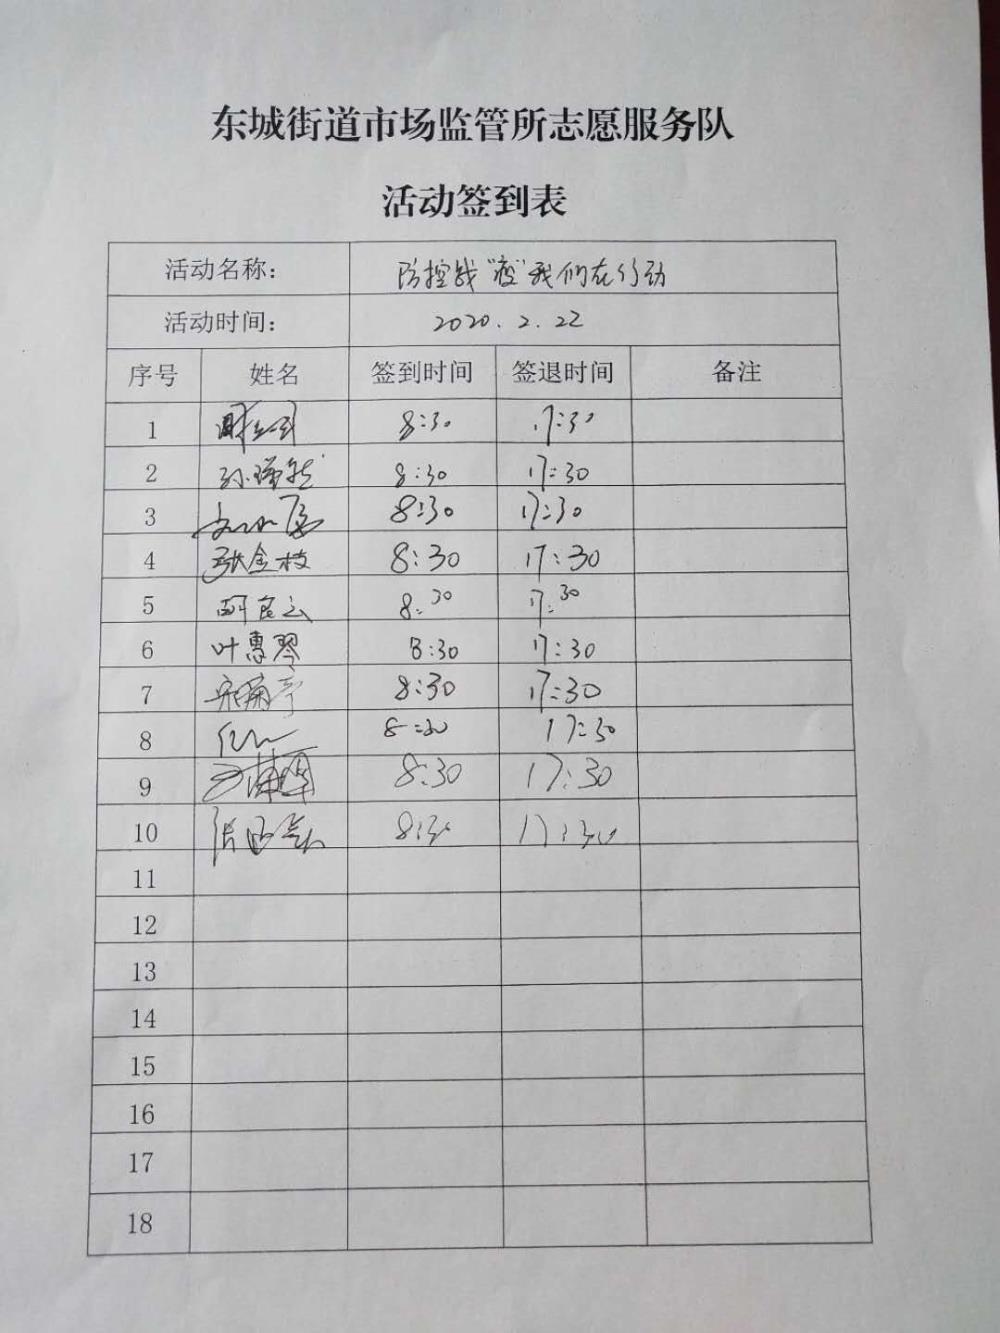 东城街道市场监管所志愿服务队
活动签到表
活动名称： 防控战“疫”我们在行动
活动时间： 2020.2.22
序号 姓名 签到时间 签退时间 备注
1 8:30 17:30
2 孙瑞 8:30 17:30
3 8:30 17:30
4 张金枝 8:30 17:30
5 8:30 17:30
6 叶惠琴 8:30 17:30
7 8:30 17:30
8 8:30 17:30
9 8:30 17:30
10 8:30 17:30
11
12
13
14
15
16
17
18